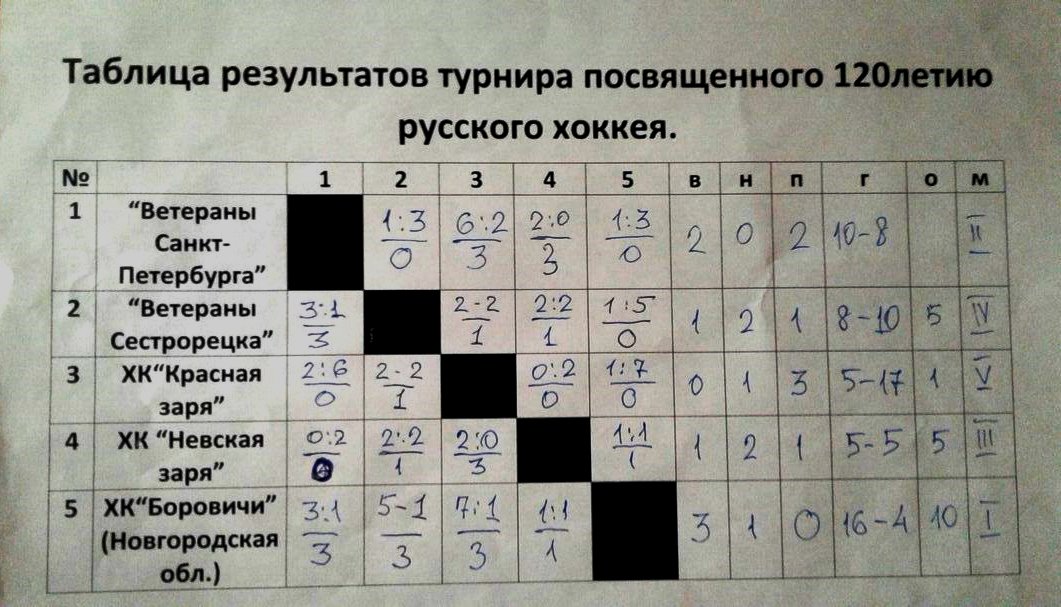 Таблица результатов турнира посвященного 120летию
русского хоккея.
№ 1 2 3 4 5 в н п г о м
1 "Ветераны Санкт-Петербурга" 1:3/0 6:2/3 2:0/3 1:3/0 2 0 2 10-8 II
2 "Ветераны Сестрорецка" 3:1/3 2-2/1 2:2/1 1:5/0 1 2 1 8-10 5 IV
3 ХК"Красная заря" 2:6/0 2-2/1 0:2/0 1:7/0 0 1 3 5-17 1 V
4 ХК "Невская заря" 0:2/0 2:2/1 2:0/3 1:1/1 1 2 1 5-5 5 III
5 ХК"Боровичи" (Новгородская обл.) 3:1/3 5-1/3 7:1/3 1:1/1 3 1 0 16-4 10 I